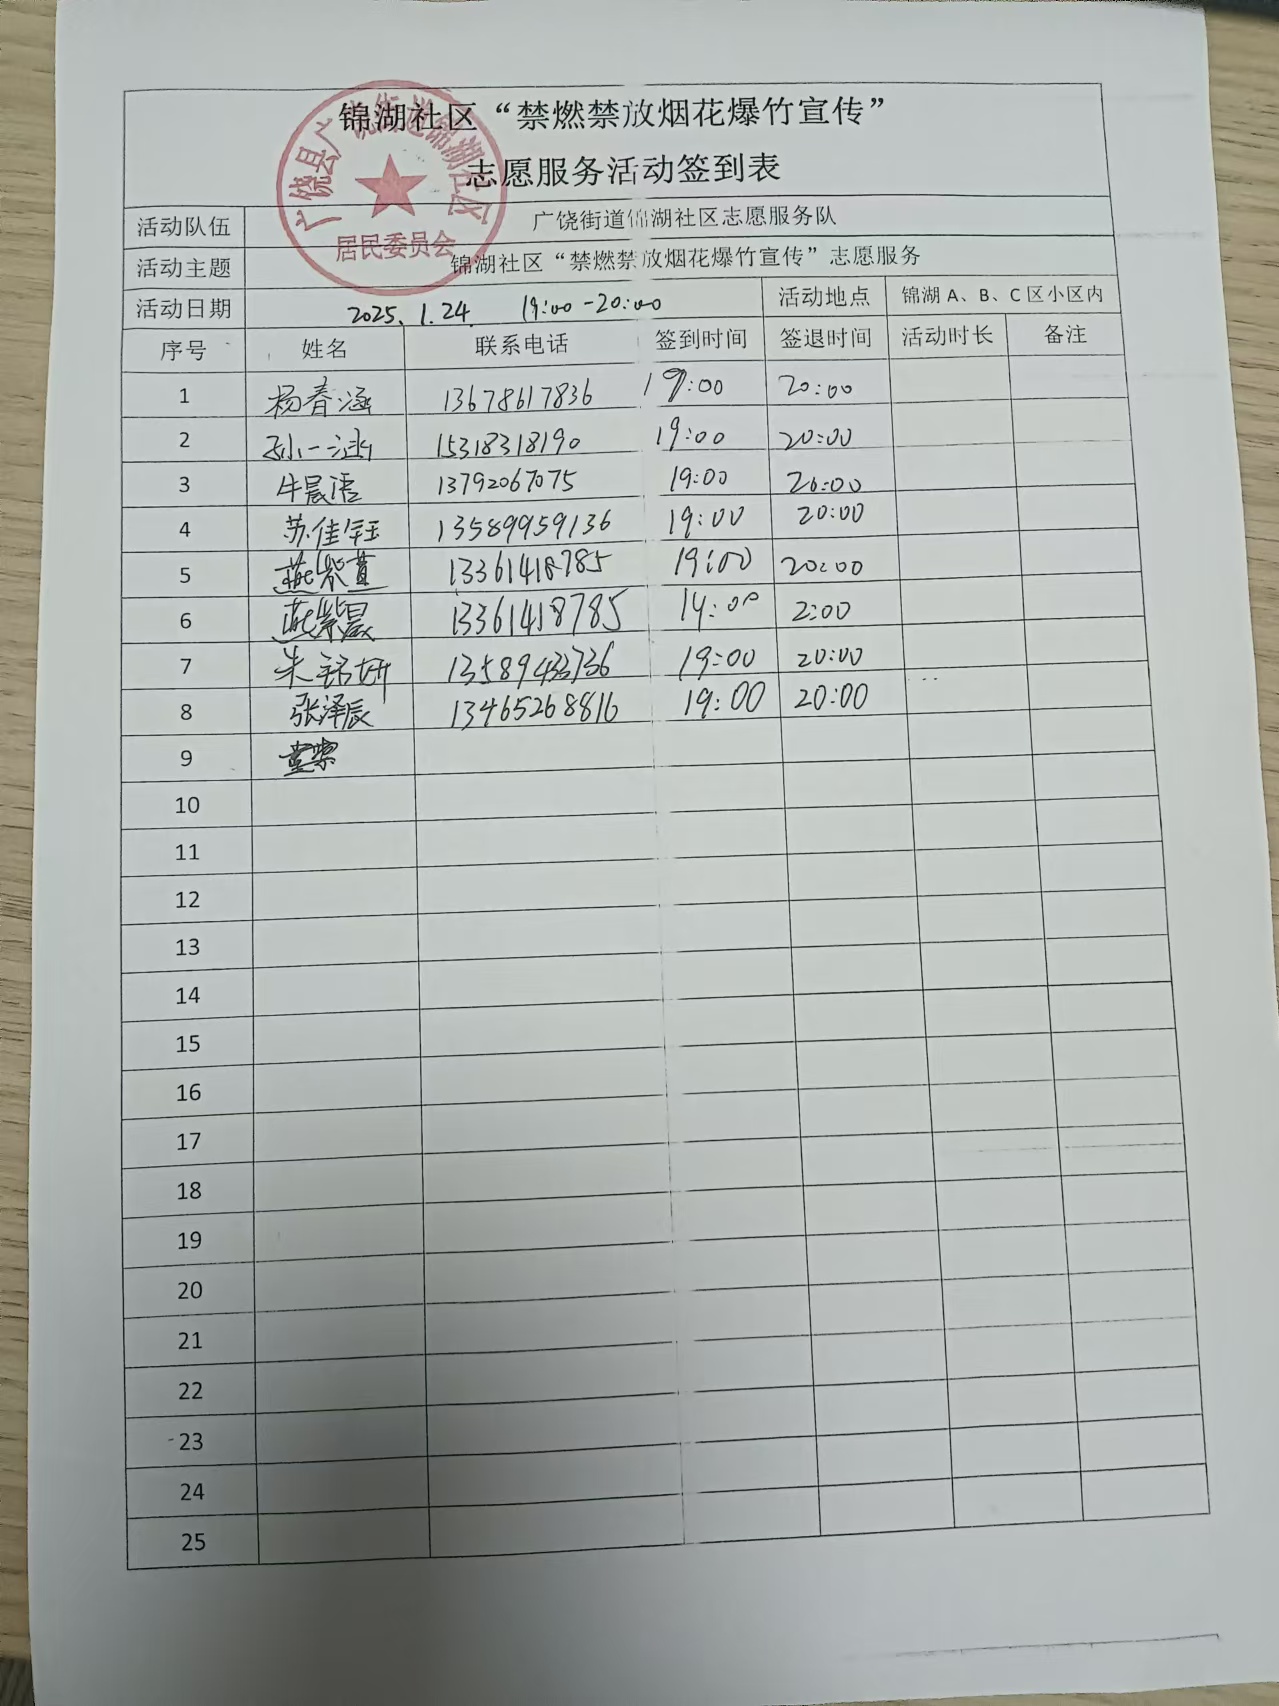 锦湖社区“禁燃禁放烟花爆竹宣传”
志愿服务活动签到表
广饶县广饶街道锦湖社区
居民委员会
活动队伍 广饶街道锦湖社区志愿服务队
活动主题 锦湖社区“禁燃禁放烟花爆竹宣传”志愿服务
活动日期 2025.1.24 19:00-20:00 活动地点 锦湖 A、B、C 区小区内
序号 姓名 联系电话 签到时间 签退时间 活动时长 备注
1 杨春涵 13678617836 19:00 20:00
2 孙一涵 15318318190 19:00 20:00
3 牛晨语 13792067075 19:00 20:00
4 苏佳钰 13589959136 19:00 20:00
5 燕紫萱 13361418785 19:00 20:00
6 燕紫晨 13361418785 19:00 2:00
7 朱铭妍 13589433736 19:00 20:00
8 张泽辰 13465268816 19:00 20:00
9
10
11
12
13
14
15
16
17
18
19
20
21
22
23
24
25